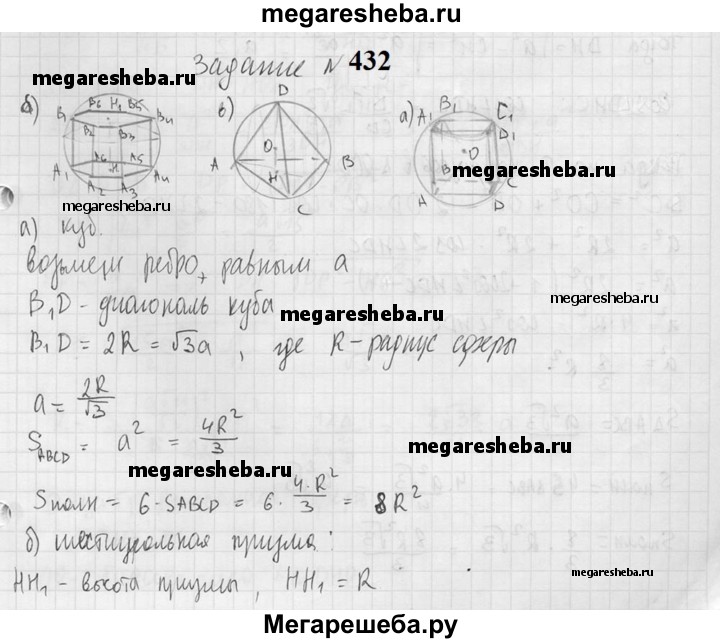 megaresheba.ru
Задание № 432
megaresheba.ru
б) в) а)
B6 H1 B5
B1 B4
B2 B3
A6 A5
A1 H A4
A2 A3
D
O
A B
H
C
B1
A1 C1
D1
O
B C
A D
megaresheba.ru
megaresheba.ru
а) куб.
возьмем ребро, равным a
B₁D - диагональ куба
megaresheba.ru
megaresheba.ru
B₁D = 2R = √3a , где R - радиус сферы
a = 2R/√3
S_ABCD = a² = 4R²/3
megaresheba.ru
megaresheba.ru
Sполн = 6·S_ABCD = 6·4·R²/3 = 8R²
б) шестиугольная призма:
HH₁ - высота призмы, HH₁ = R
megaresheba.ru
Мегарешеба.ру